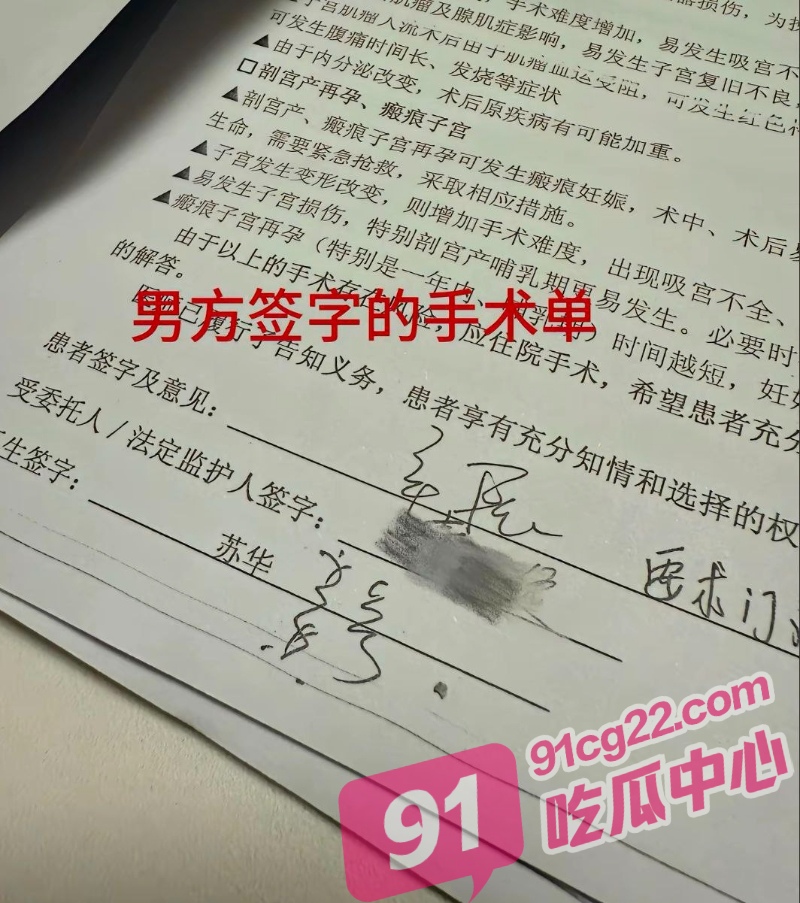 手术难度增加，易发生吸宫不
子宫肌瘤人流术后由于肌瘤血运受阻，可发生红色
可发生腹痛时间长、发烧等症状
▲由于内分泌改变，术后原疾病有可能加重。
□剖宫产再孕、瘢痕子宫
▲剖宫产、瘢痕子宫再孕可发生瘢痕妊娠，术中、术后易
生命，需要紧急抢救，采取相应措施。
▲子宫发生变形改变，则增加手术难度，出现吸宫不全、
▲易发生子宫损伤，特别剖宫产哺乳期更易发生。必要时
▲瘢痕子宫再孕（特别是一年内、）时间越短，妊
由于以上的手术存在风险，应住院手术，希望患者充分
的解答。
医院已履行了告知义务，患者享有充分知情和选择的权
男方签字的手术单
患者签字及意见：
要求门
受委托人/法定监护人签字：
生签字：
苏华
91
91cg22.com
吃瓜中心